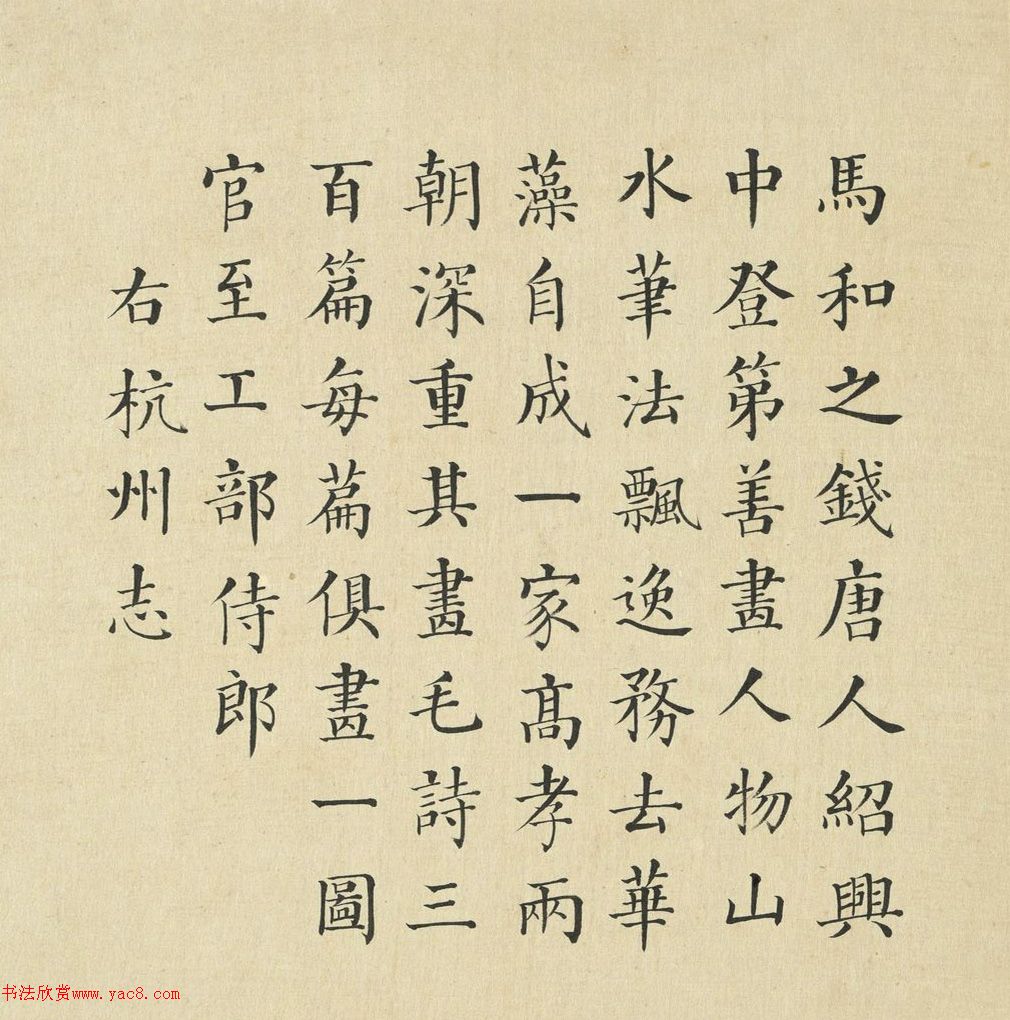 馬和之錢唐人紹興
中登第善畫人物山
水筆法飄逸務去華
藻自成一家高孝兩
朝深重其畫毛詩三
百篇每篇俱畫一圖
官至工部侍郎
右杭州志
书法欣赏www.yac8.com